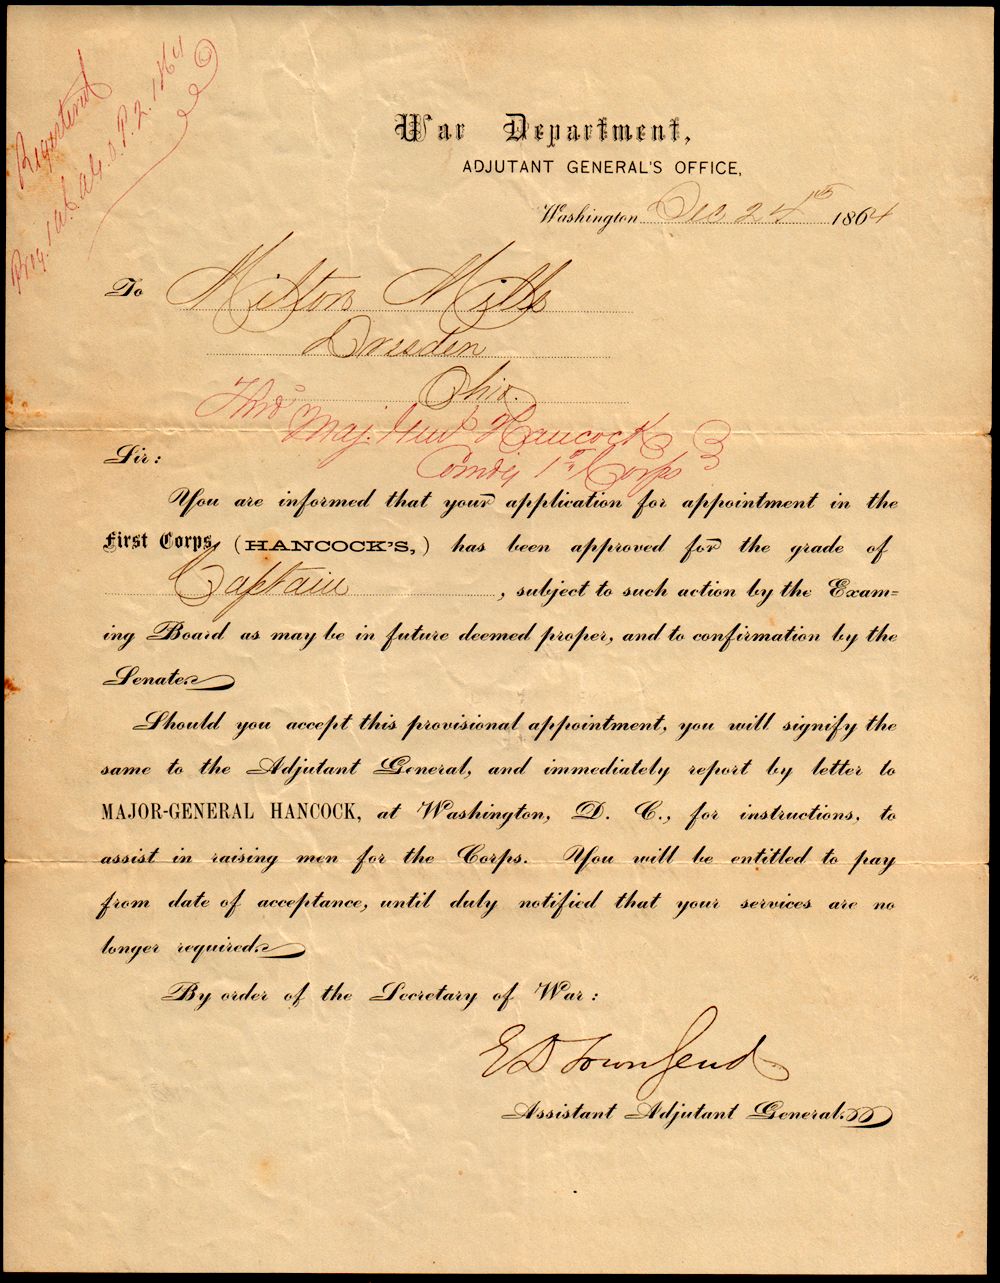 Registered
P. 2. 1864
War Department,
ADJUTANT GENERAL'S OFFICE,
Washington Dec 24th 1864
To Milton Mills
Dresden
Ohio.
Thro'
Maj. Genl Hancock
Comd'g 1st Corps
Sir:
You are informed that your application for appointment in the
First Corps, (HANCOCK'S,) has been approved for the grade of
Captain, subject to such action by the Exam=
ing Board as may be in future deemed proper, and to confirmation by the
Senate.
Should you accept this provisional appointment, you will signify the
same to the Adjutant General, and immediately report by letter to
MAJOR-GENERAL HANCOCK, at Washington, D. C., for instructions, to
assist in raising men for the Corps. You will be entitled to pay
from date of acceptance, until duly notified that your services are no
longer required.
By order of the Secretary of War:
E D Townsend
Assistant Adjutant General.